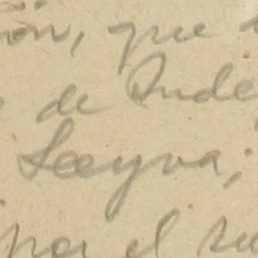 ón, que
de Inde
Leeyva;
por el su